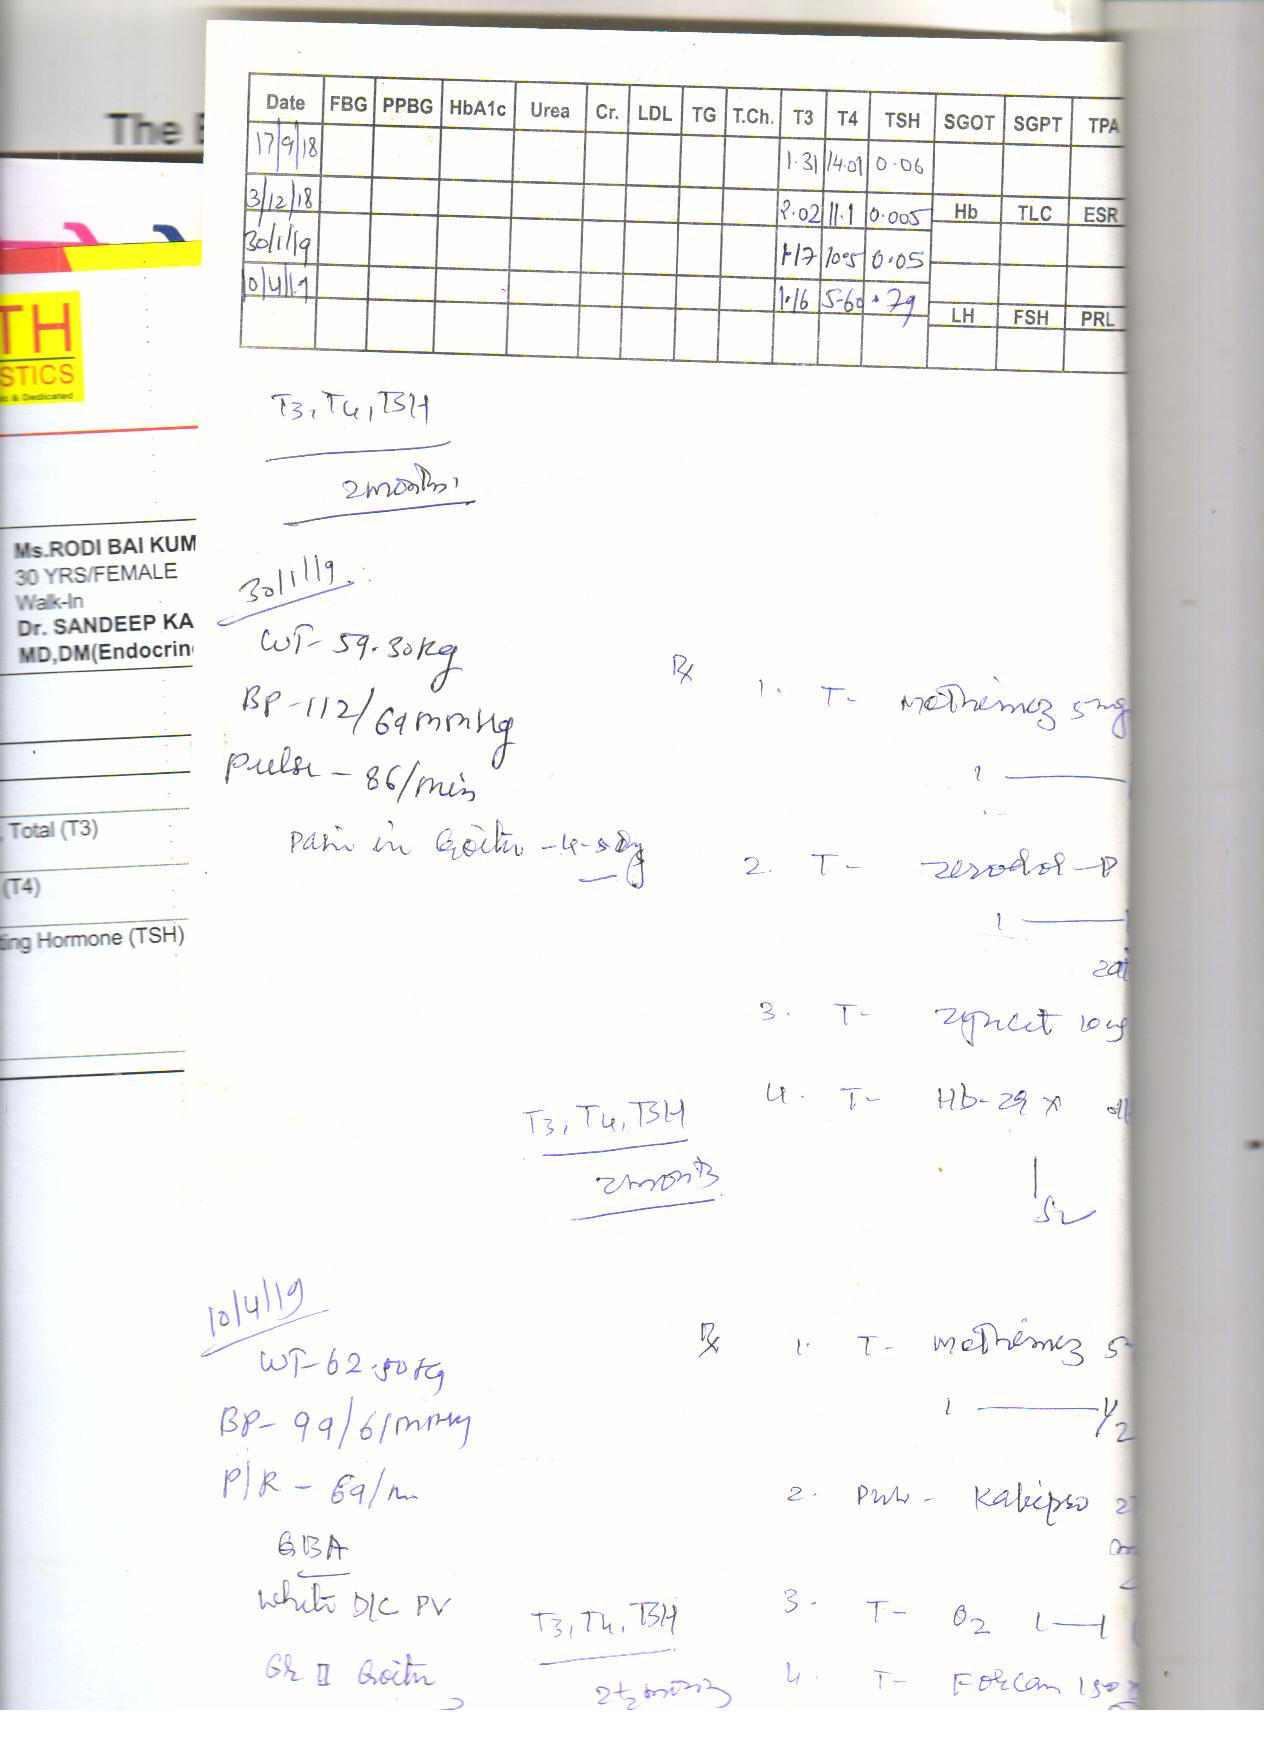 The
TH
STICS
ic & Dedicated
Ms.RODI BAI KUM
30 YRS/FEMALE
Walk-In
Dr. SANDEEP KA
MD,DM(Endocrin
, Total (T3)
(T4)
ting Hormone (TSH)
Date FBG PPBG HbA1c Urea Cr. LDL TG T.Ch. T3 T4 TSH SGOT SGPT TPA
17/9/18 1.31 14.01 0.06
3/12/18 2.02 11.1 0.005 Hb TLC ESR
30/1/19 1.17 10.5 0.05
10/4/19 1.16 5.60 .79 LH FSH PRL
T3, T4, TSH
2 months
30/1/19
WT- 59.30kg
BP-112/69mmHg
Pulse - 86/min
Pain in Goitre -4-5 day
Rx
1. T- methimez 5mg
1
2. T- zerodol-P
1
3. T- zyncet 10mg
4. T- Hb-29 x
T3, T4, TSH
2 months
10/4/19
WT-62.50kg
BP- 99/61mmHg
P/R - 69/m
GBA
white D/C PV
Gr II Goitre
T3, T4, TSH
2½ months
Rx
1. T- methimez 5
1 1/2
2. Kalcipro
3. T- O2 1-1
4. T- Forcan 150